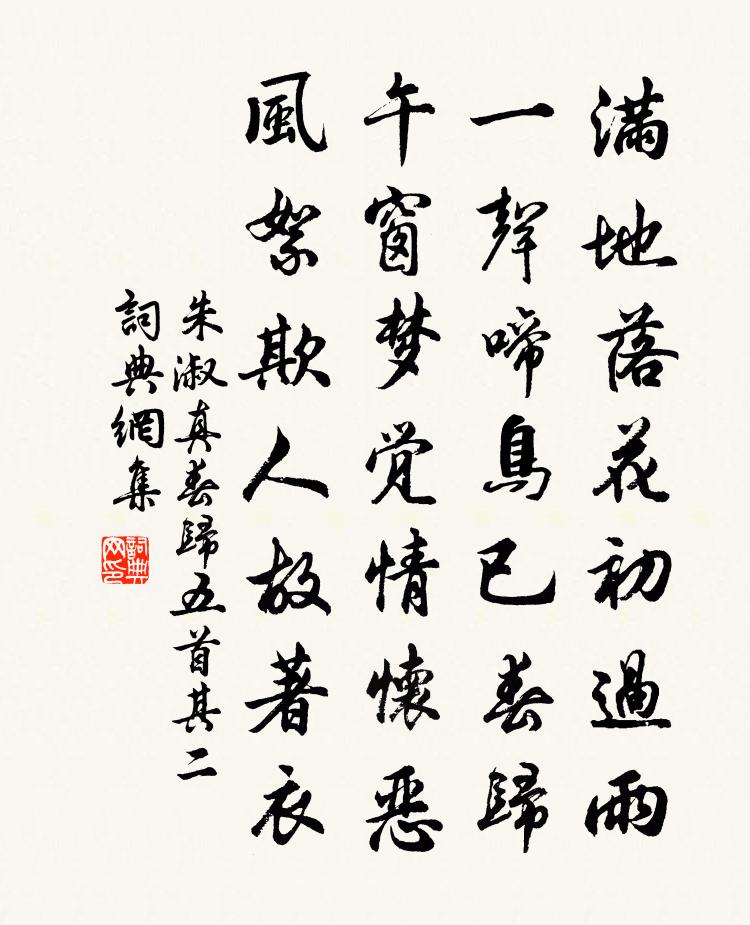 滿地落花初過雨
一聲啼鳥已春歸
午窗梦觉情懷惡
風絮欺人故著衣
朱淑真春歸五首其二
詞典網集
詞典网印